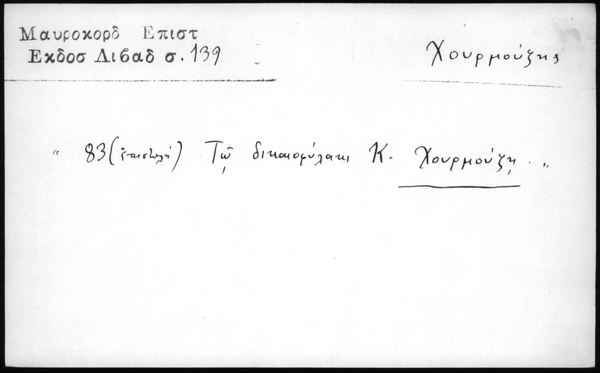 Μαυροκορδ Επιστ
Εκδοσ Λιβαδ σ. 139
Χουρμούζης
" 83 (ἐπιστολή) Τῷ δικαιοφύλακι Κ. Χουρμούζῃ. "